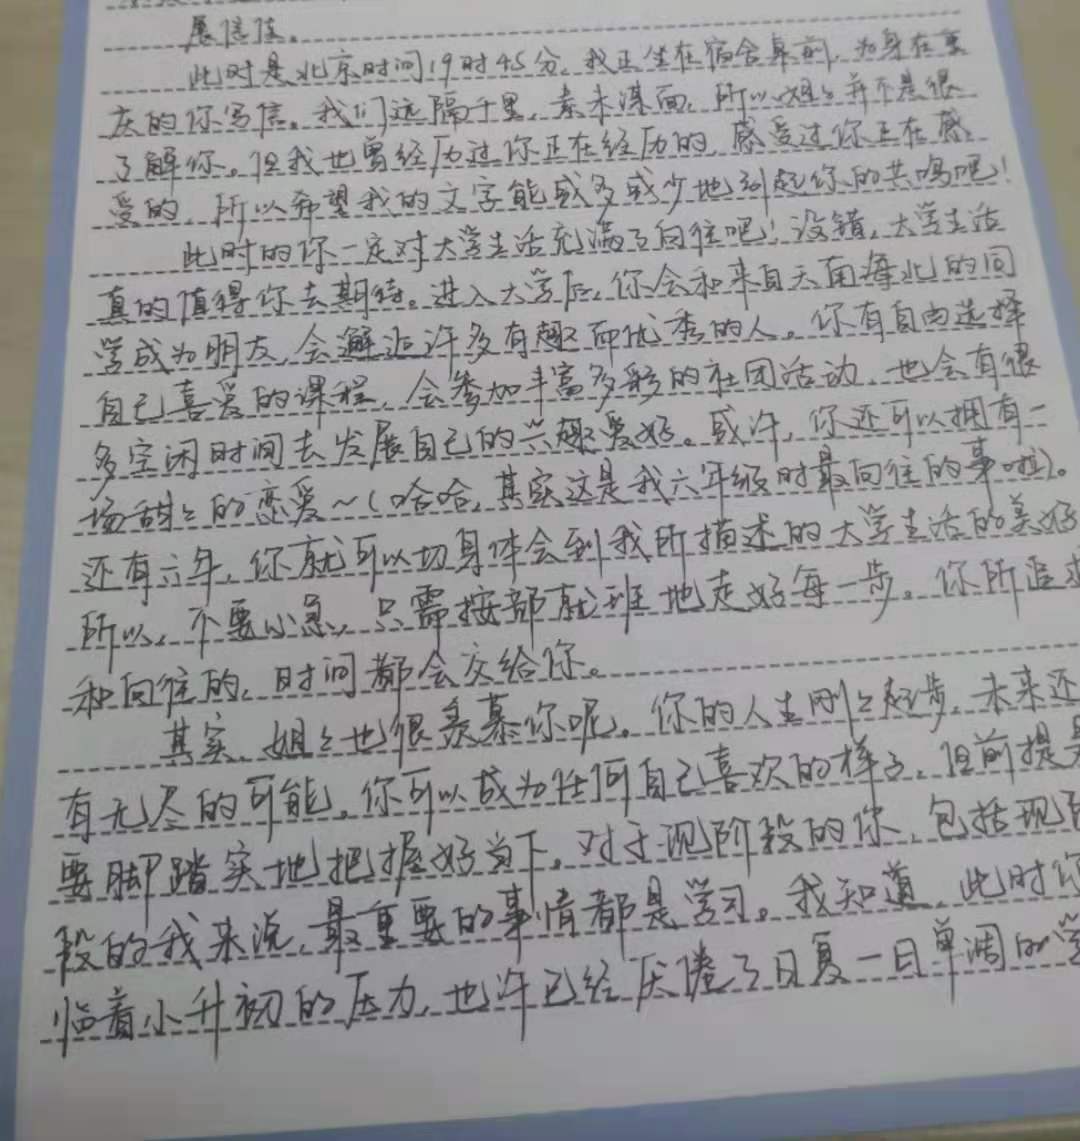 展信佳。
此时是北京时间19时45分,我正坐在宿舍桌前,为身在重
庆的你写信。我们远隔千里,素未谋面,所以姐々并不是很
了解你。但我也曾经历过你正在经历的,感受过你正在感
受的,所以希望我的文字能或多或少地引起你的共鸣吧!
此时的你一定对大学生活充满了向往吧!没错,大学生活
真的值得你去期待。进入大学后,你会和来自天南海北的同
学成为朋友,会邂逅许多有趣而优秀的人。你有自由选择
自己喜爱的课程,会参加丰富多彩的社团活动,也会有很
多空闲时间去发展自己的兴趣爱好。或许,你还可以拥有一
场甜々的恋爱~(哈哈,其实这是我六年级时最向往的事啦)。
还有六年,你就可以切身体会到我所描述的大学生活的美好
所以,不要心急,只需按部就班地走好每一步。你所追求
和向往的,时间都会交给你。
其实,姐々也很羡慕你呢。你的人生刚々起步,未来还
有无尽的可能。你可以成为任何自己喜欢的样子,但前提是
要脚踏实地把握好当下。对于现阶段的你,包括现阶
段的我来说,最重要的事情都是学习。我知道,此时你
临着小升初的压力,也许已经厌倦了日复一日单调的学